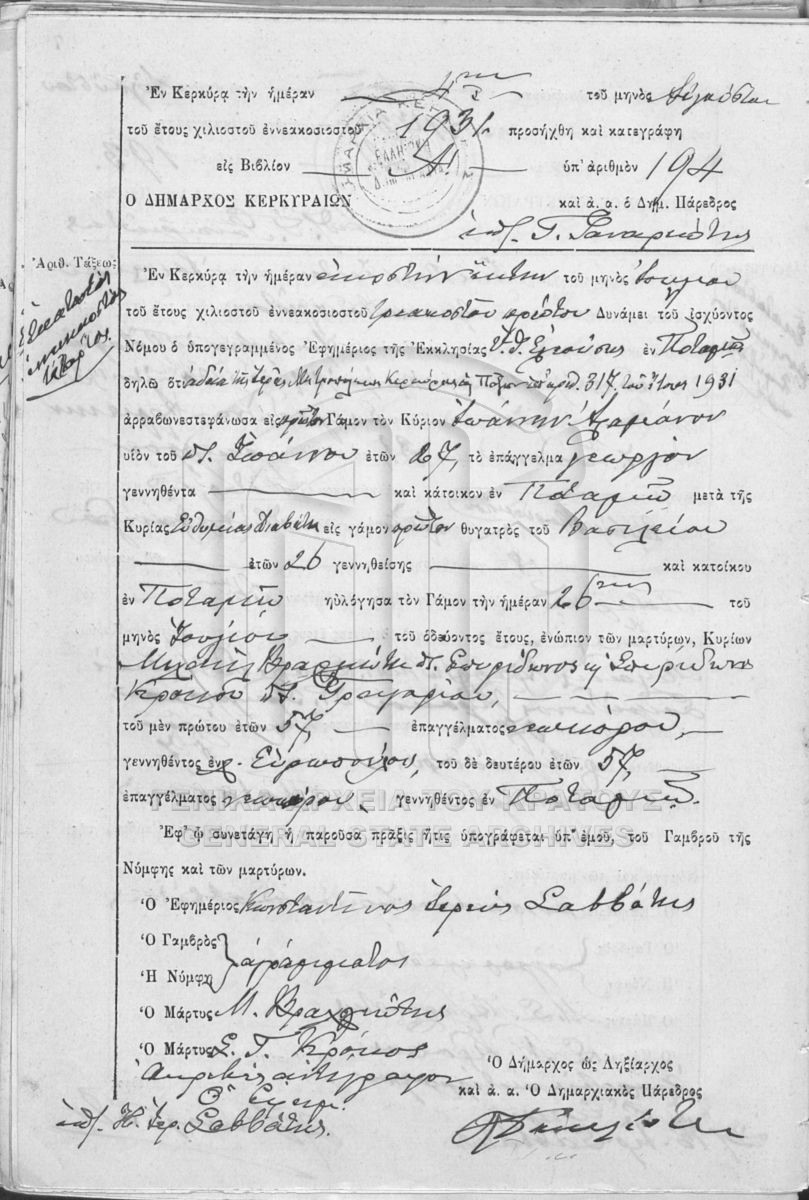 Ἐν Κερκύρᾳ τὴν ἡμέραν 4ην τοῦ μηνὸς Αὐγούστου
τοῦ ἔτους χιλιοστοῦ ἐννεακοσιοστοῦ 1931 προσήχθη καὶ κατεγράφη
εἰς Βιβλίον ὑπ' ἀριθμὸν 194
Ο ΔΗΜΑΡΧΟΣ ΚΕΡΚΥΡΑΙΩΝ καὶ ἀ. ἀ. ὁ Δημ. Πάρεδρος
ὑπ. Γ.
Ἀριθ. Τάξεως
Ἑκατοστὸς ἐνενηκοστὸς τέταρτος
Ἐν Κερκύρᾳ τὴν ἡμέραν εἰκοστὴν ἕκτην τοῦ μηνὸς Ἰουλίου
τοῦ ἔτους χιλιοστοῦ ἐννεακοσιοστοῦ τριακοστοῦ πρώτου Δυνάμει τοῦ ἰσχύοντος
Νόμου ὁ ὑπογεγραμμένος Ἐφημέριος τῆς Ἐκκλησίας Ὑ. Θ. Ἐλεούσης ἐν Ποταμῷ
δηλῶ ὅτι ἀδείᾳ τῆς Ἱερᾶς Μητροπόλεως Κερκύρας καὶ Παξῶν ὑπ' ἀριθ. 317 τοῦ ἔτους 1931
ἀρραβωνεστεφάνωσα εἰς πρῶτον Γάμον τὸν Κύριον Ἰωάννην
υἱὸν τοῦ ποτ. Ἰωάννου ἐτῶν 27, τὸ ἐπάγγελμα γεωργὸν
γεννηθέντα καὶ κάτοικον ἐν Ποταμῷ μετὰ τῆς
Κυρίας Εὐθυμίας Διαβάτη εἰς γάμον πρῶτον θυγατρὸς τοῦ Βασιλείου
ἐτῶν 26 γεννηθείσης καὶ κατοίκου
ἐν Ποταμῷ ηὐλόγησα τὸν Γάμον τὴν ἡμέραν 26ην τοῦ
μηνὸς Ἰουλίου τοῦ ὁδεύοντος ἔτους, ἐνώπιον τῶν μαρτύρων, Κυρίων
Μιχαὴλ Βραχλιώτη ποτ. Σπυρίδωνος καὶ Σπυρίδωνος
Κρόκου ποτ.
τοῦ μὲν πρώτου ἐτῶν 57, ἐπαγγέλματος νεωκόρου,
γεννηθέντος ἐν Εὐρωπούλοις, τοῦ δὲ δευτέρου ἐτῶν 57,
ἐπαγγέλματος γεννηθέντος ἐν Ποταμῷ.
ΓΕΝΙΚΑ ΑΡΧΕΙΑ ΤΟΥ ΚΡΑΤΟΥΣ
GENERAL STATE ARCHIVES
Ἐφ' ᾧ συνετάγη ἡ παροῦσα πρᾶξις ἥτις ὑπογράφεται ὑπ' ἐμοῦ, τοῦ Γαμβροῦ τῆς
Νύμφης καὶ τῶν μαρτύρων.
Ὁ Ἐφημέριος Κωνσταντῖνος Ἱερεὺς Σαββάτης
Ὁ Γαμβρὸς
ἀγράμματος
Ἡ Νύμφη
Ὁ Μάρτυς Μ. Βραχλιώτης
Ὁ Μάρτυς Σ. Γ. Κρόκος
Ἀκριβὲς ἀντίγραφον
Ὁ Δήμαρχος ὡς Ληξίαρχος
Ὁ Ἐφημ.
καὶ ἀ. ἀ. Ὁ Δημαρχιακὸς Πάρεδρος
ὑπ. Κ. Ἱερ. Σαββάτης